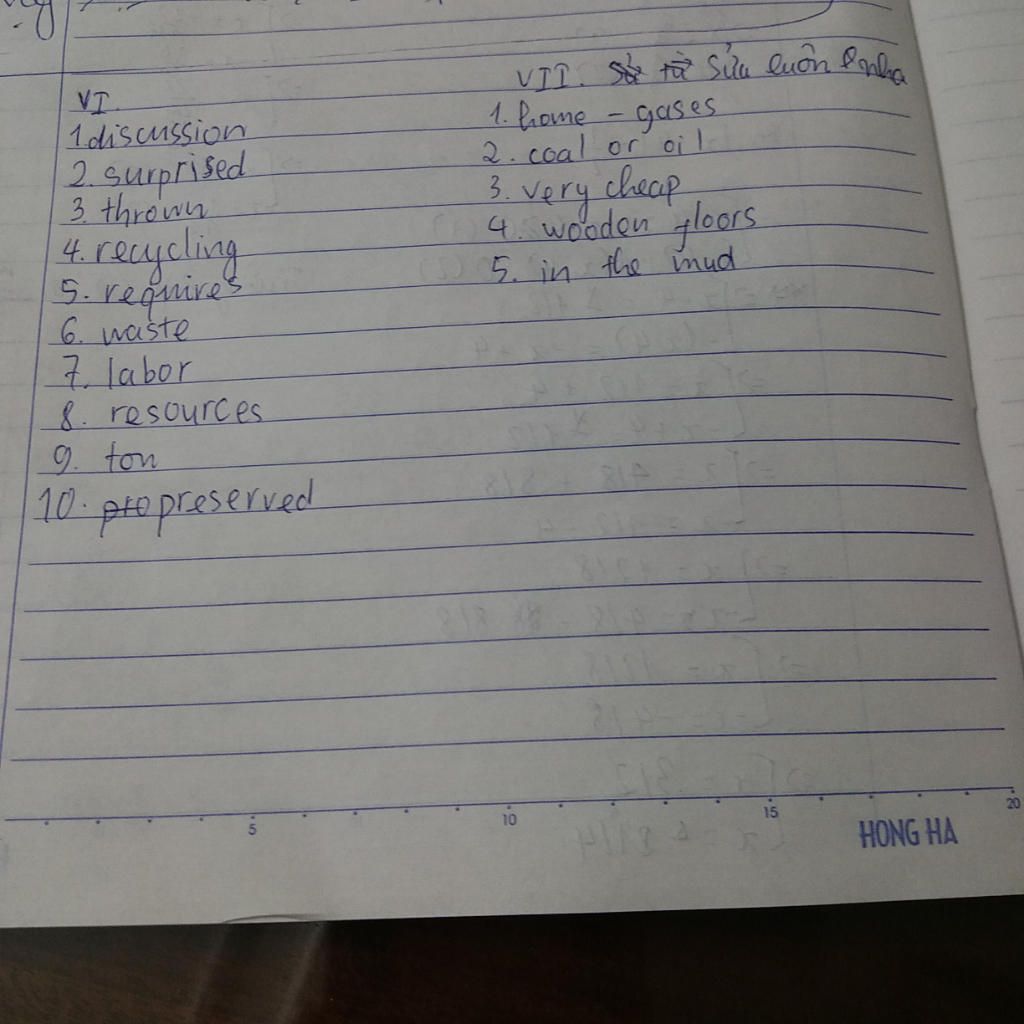 VI.
1. discussion
2. surprised
3. thrown
4. recycling
5. requires
6. waste
7. labor
8. resources
9. ton
10. preserved
VII. Sửa luôn
1. home - gases
2. coal or oil
3. very cheap
4. wooden floors
5. in the mud
5 10 15 20
HONG HA